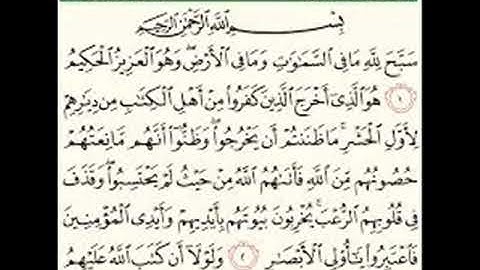 بِسْمِ ٱللَّهِ ٱلرَّحْمَٰنِ ٱلرَّحِيمِ
سَبَّحَ لِلَّهِ مَا فِي ٱلسَّمَٰوَٰتِ وَمَا فِي ٱلْأَرْضِۖ وَهُوَ ٱلْعَزِيزُ ٱلْحَكِيمُ
١ هُوَ ٱلَّذِيٓ أَخْرَجَ ٱلَّذِينَ كَفَرُوا۟ مِنْ أَهْلِ ٱلْكِتَٰبِ مِن دِيَٰرِهِمْ
لِأَوَّلِ ٱلْحَشْرِۚ مَا ظَنَنتُمْ أَن يَخْرُجُوا۟ۖ وَظَنُّوٓا۟ أَنَّهُم مَّانِعَتُهُمْ
حُصُونُهُم مِّنَ ٱللَّهِ فَأَتَىٰهُمُ ٱللَّهُ مِنْ حَيْثُ لَمْ يَحْتَسِبُوا۟ۖ وَقَذَفَ
فِي قُلُوبِهِمُ ٱلرُّعْبَۚ يُخْرِبُونَ بُيُوتَهُم بِأَيْدِيهِمْ وَأَيْدِي ٱلْمُؤْمِنِينَ
فَٱعْتَبِرُوا۟ يَٰٓأُو۟لِي ٱلْأَبْصَٰرِ ٢ وَلَوْلَآ أَن كَتَبَ ٱللَّهُ عَلَيْهِمُ